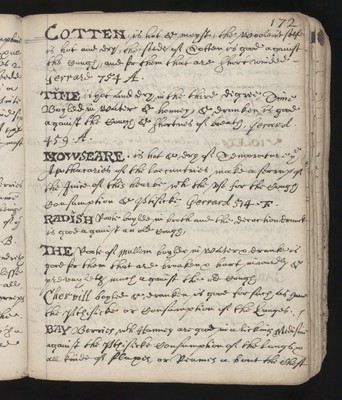 172
COTTEN is hot & moyst, the woolen it selfe
is hot and dry, the seede of Cotten is good against
the Cough, and for them that are short winded
Gerrard 754 A.
TIME is hot and dry in the third degree, Time
Boyled in Water & honny, & drunken is good
against the Cough & shortnes of breath. Gerrard
459 A.
MOWSEARE. is hot & dry of Temperature
Apothecaries of the lowcountries make a syrrup of
the Juice of this hearbe wch the use for the Cough
Consumption & Ptisicke Gerrard 514 F.
RADISH Roote boyled in broth and the decoction drunck
is good against an old Cough,
THE Roote of Mullem boyled in water & drunke is
good for them that are broken & hurt inwardly &
prevayleth much against the old Cough
Chervill boyled & drunken is good for such as have
the Pthisicke or Consumption of the Lunges.
BAY Berries, with Honney are good in a licking Medicine
against the Pthisicke Consumption of the Lungs &
all kinde of Flupes or Reumes about the Chest